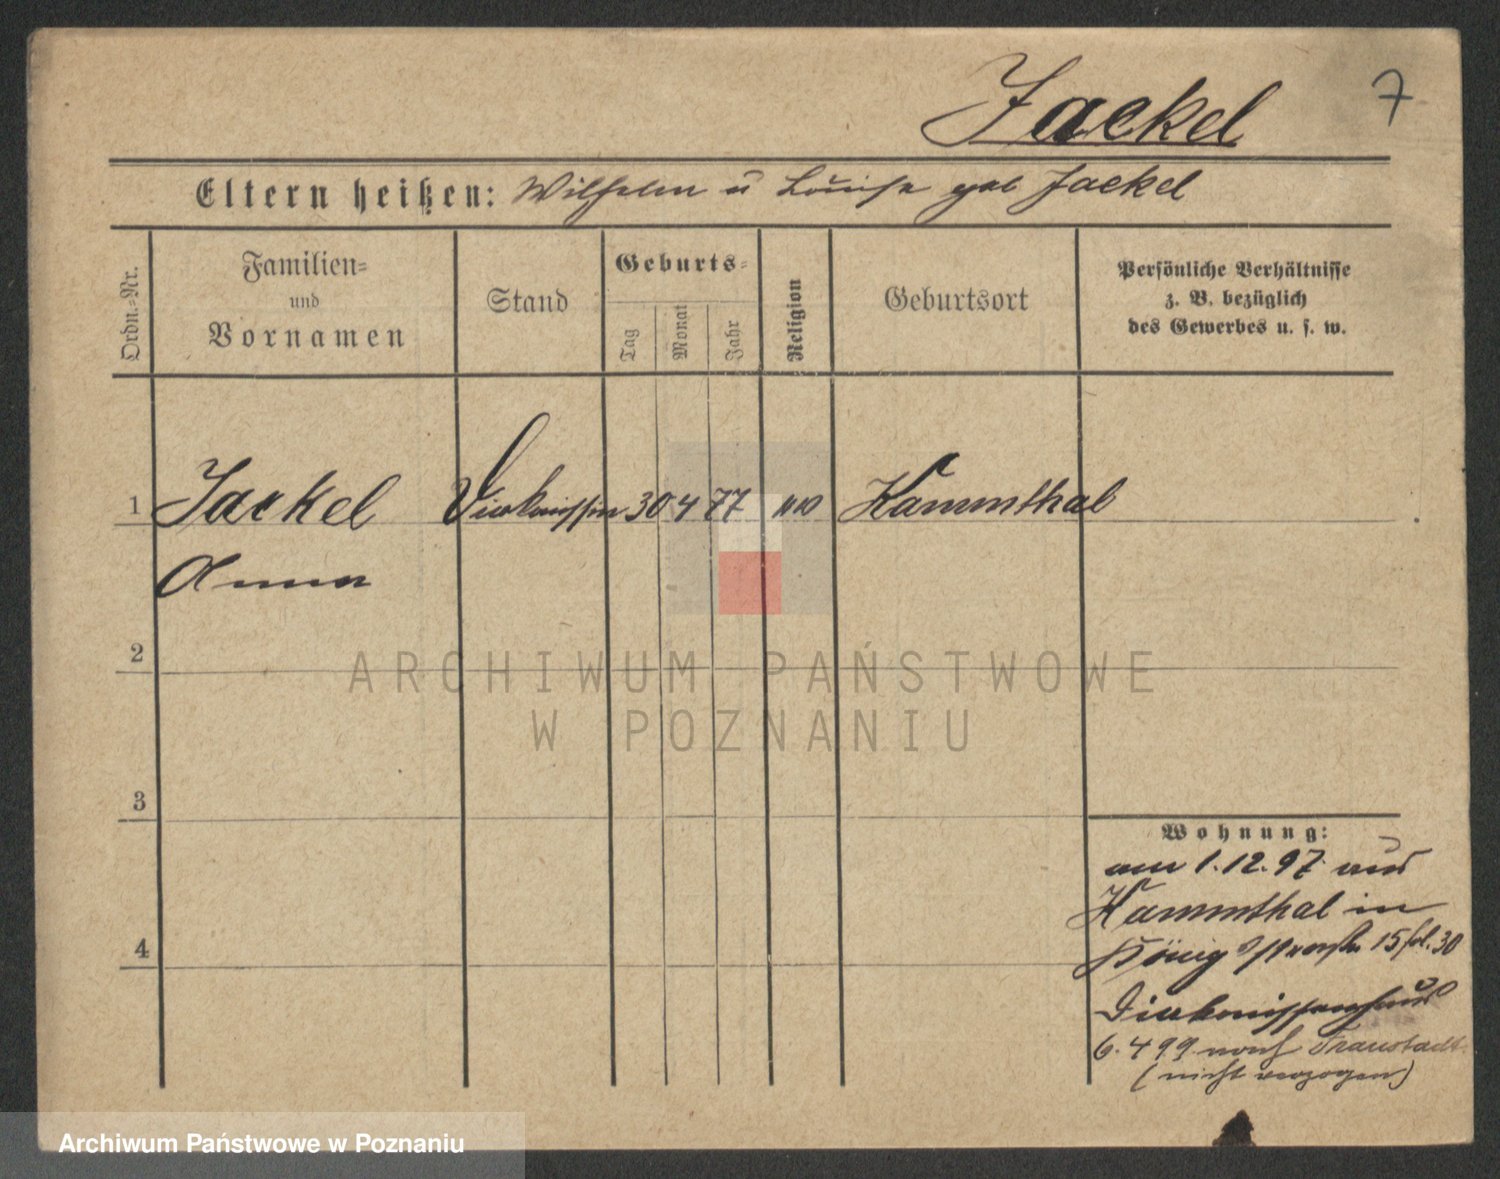 Jaekel
7
Eltern heißen: Wilhelm u Louise geb Jaekel
Ordn.-Nr.
Familien-
und
Vornamen
Stand
Geburts-
Tag
Monat
Jahr
Religion
Geburtsort
Persönliche Verhältnisse
z. B. bezüglich
des Gewerbes u. s. w.
1 Jaekel Diakonissin 30 4 77 Kammthal
Anna
2
ARCHIWUM PAŃSTWOWE
W POZNANIU
3
Wohnung:
am 1.12.97 aus
Kammthal in
König 15 fol. 30
4
Diakonissenhaus
6.4 99 nach Fraustadt
(nicht verzogen)
Archiwum Państwowe w Poznaniu